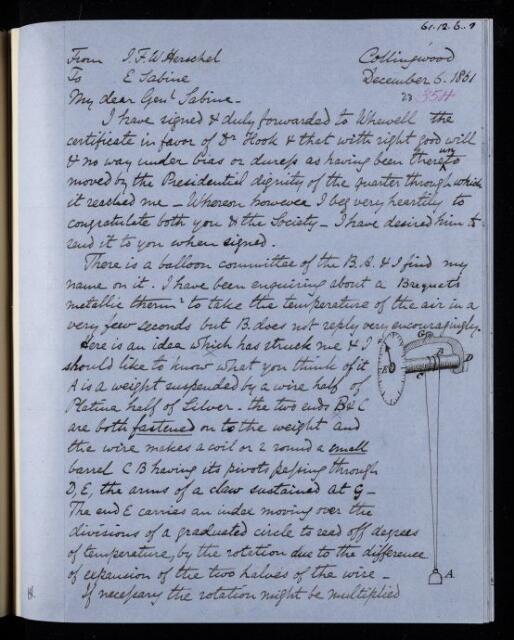 61.12.6..
From J.F.W. Herschel
Collingwood
To E Sabine
December 6. 1861
23 354
My dear Genl Sabine -
I have signed & duly forwarded to Whewell the
certificate in favor of Dr Hook & that with right good will
& no way under bias or duress as having been thereunto
moved by the Presidential dignity of the quarter through which
it reached me - Whereon however I beg very heartily to
congratulate both you & the Society - I have desired him to
send it to you when signed.
There is a balloon committee of the B.A. & I find my
name on it. I have been enquiring about a Breguet's
metallic thermr to take the temperature of the air in a
very few seconds but B. does not reply very encouragingly.
Here is an idea which has struck me & I
should like to know what you think of it
A is a weight suspended by a wire half of
Platina half of Silver - the two ends B & C
are both fastened on to the weight and
the wire makes a coil or 2 round a small
barrel C B having its pivots passing through
D, E, the arms of a claw sustained at G -
The end E carries an index moving over the
divisions of a graduated circle to read off degrees
of temperature, by the rotation due to the difference
of expansion of the two halves of the wire -
If necessary the rotation might be multiplied
G
E
B
C
D
A